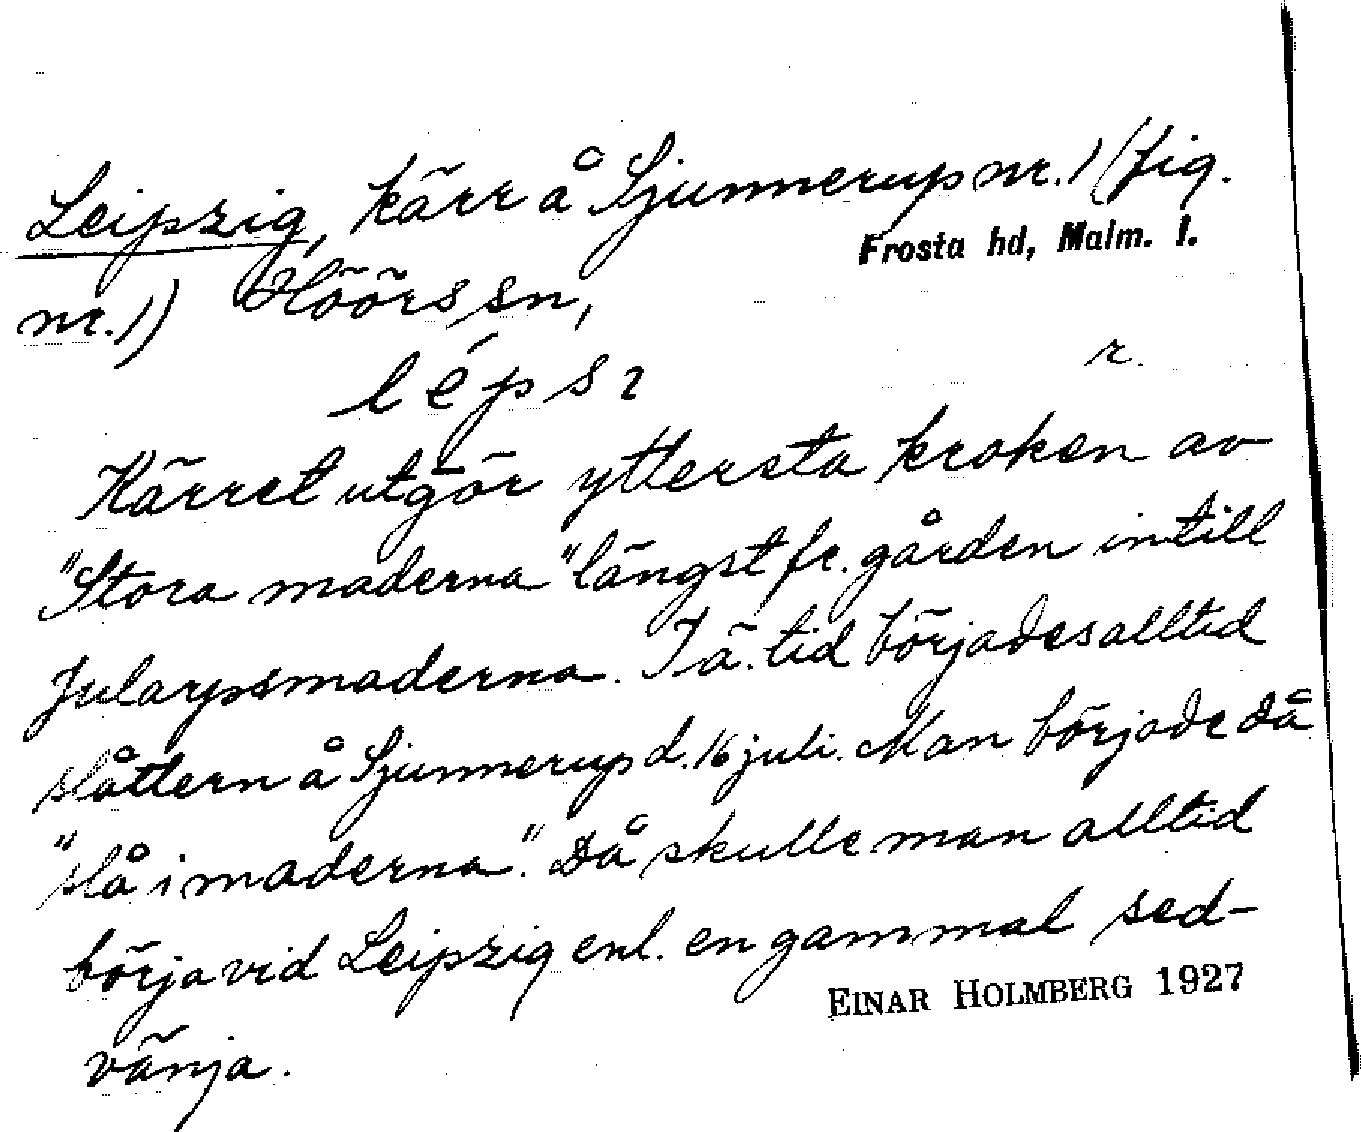 Leipzig, kärr å Sjunnerup nr. 1 (fig.
Frosta hd, Malm. l.
nr. 1) Höörs sn,
lépsı
r.
Kärret utgör yttersta kroken av
"Stora maderna" längst fr. gården intill
Jularpsmaderna. I ä. tid börjades alltid
slåttern å Sjunnerup d. 16 juli. Man började då
"slå i maderna". Då skulle man alltid
börja vid Leipzig enl. en gammal sed-
EINAR HOLMBERG 1927
vänja.